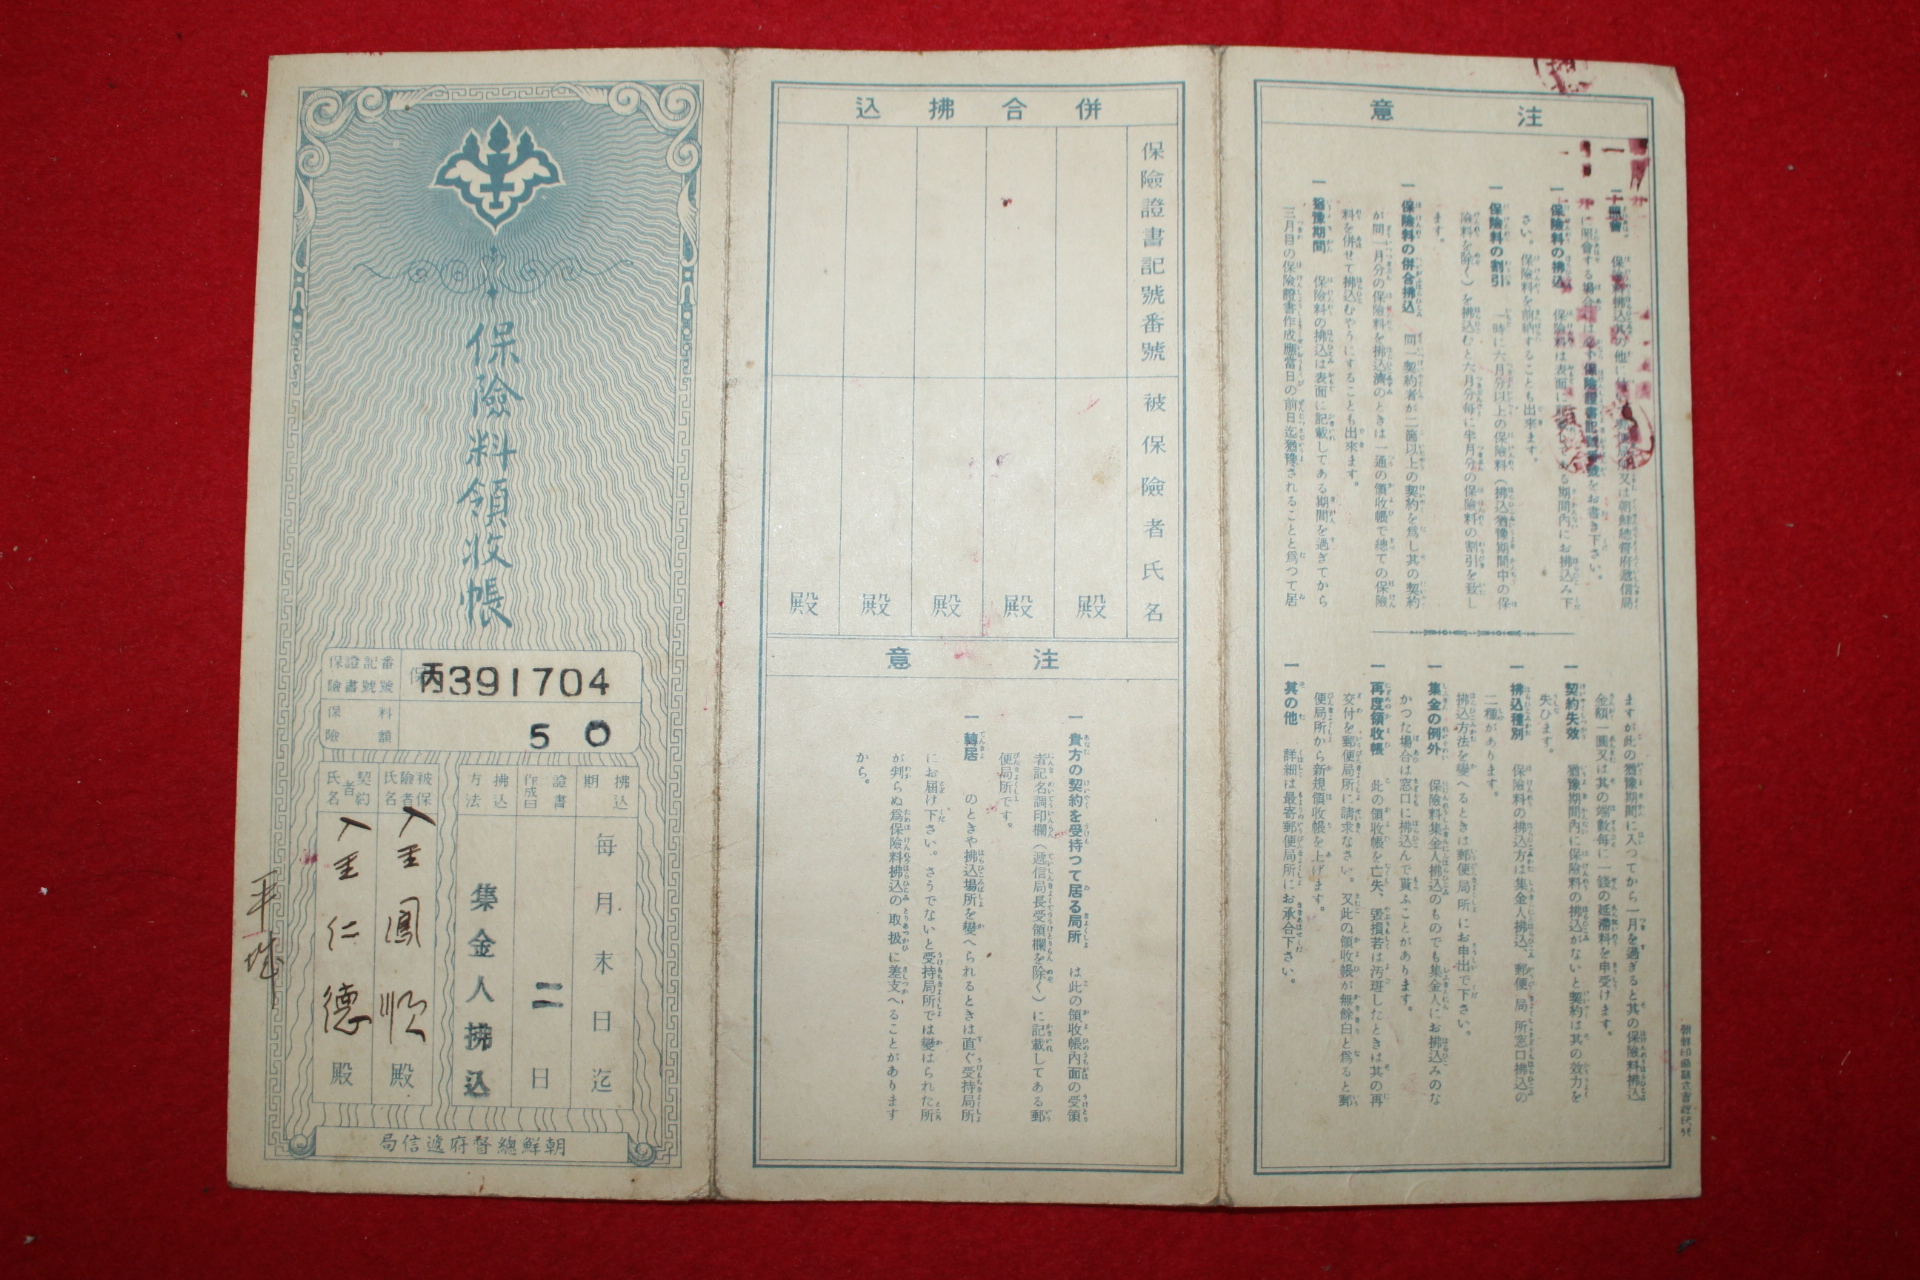 保險料領收帳
保險證書記號番號
丙391704
保險料額
50
拂込期
每月末日迄
證書作成日
二日
拂込方法
集金人拂込
被保險者氏名
鳳順殿
契約者氏名
仁德殿
朝鮮總督府遞信局
併合拂込
保險證書記號番號
被保險者氏名
殿
殿
殿
殿
殿
注意
一 貴方の契約を受持つて居る局所 は此の領收帳內面の受領
者記名調印欄（遞信局長受領欄を除く）に記載してある郵
便局所です。
一 轉居 のときや拂込場所を變へられるときは直ぐ受持局所
にお届け下さい。さうでないと受持局所では變はられた所
が判らぬ爲保險料拂込の取扱に差支へることがあります
から。
注意
一 照會 保險料拂込其の他に
又は朝鮮總督府遞信局
に照會する場合は必ず保險證書記號番號をお書き下さい。
一 保險料の拂込 保險料は表面に
る期間內にお拂込み下
さい。保險料を前納することも出來ます。
一 保險料の割引 一時に六月分以上の保險料（拂込猶豫期間中の保
險料を除く）を拂込むと六月分每に半月分の保險料の割引を致し
ます。
一 保險料の併合拂込 同一契約者が二箇以上の契約を爲し其の契約
が同一月分の保險料を拂込濟のときは一通の領收帳で總ての保險
料を併せて拂込むやうにすることも出來ます。
一 猶豫期間 保險料の拂込は表面に記載してある期間を過ぎてから
三月目の保險證書作成應當日の前日迄猶豫されることと爲つて居
ますが此の猶豫期間に入つてから一月を過ぎると其の保險料拂込
金額一圓又は其の端數每に一錢の延滯料を申受けます。
一 契約失效 猶豫期間內に保險料の拂込がないと契約は其の效力を
失ひます。
一 拂込種別 保險料の拂込方は集金人拂込、郵便局所窓口拂込の
二種があります。
拂込方法を變へるときは郵便局所にお申出で下さい。
一 集金の例外 保險料集金人拂込のものでも集金人にお拂込みのな
かつた場合は窓口に拂込んで貰ふことがあります。
一 再度領收帳 此の領收帳を亡失、毀損若は汚斑したときは其の再
交付を郵便局所に請求なさい。又此の領收帳が無餘白と爲ると郵
便局所から新規領收帳を上げます。
一 其の他 詳細は最寄郵便局所にお承合下さい。